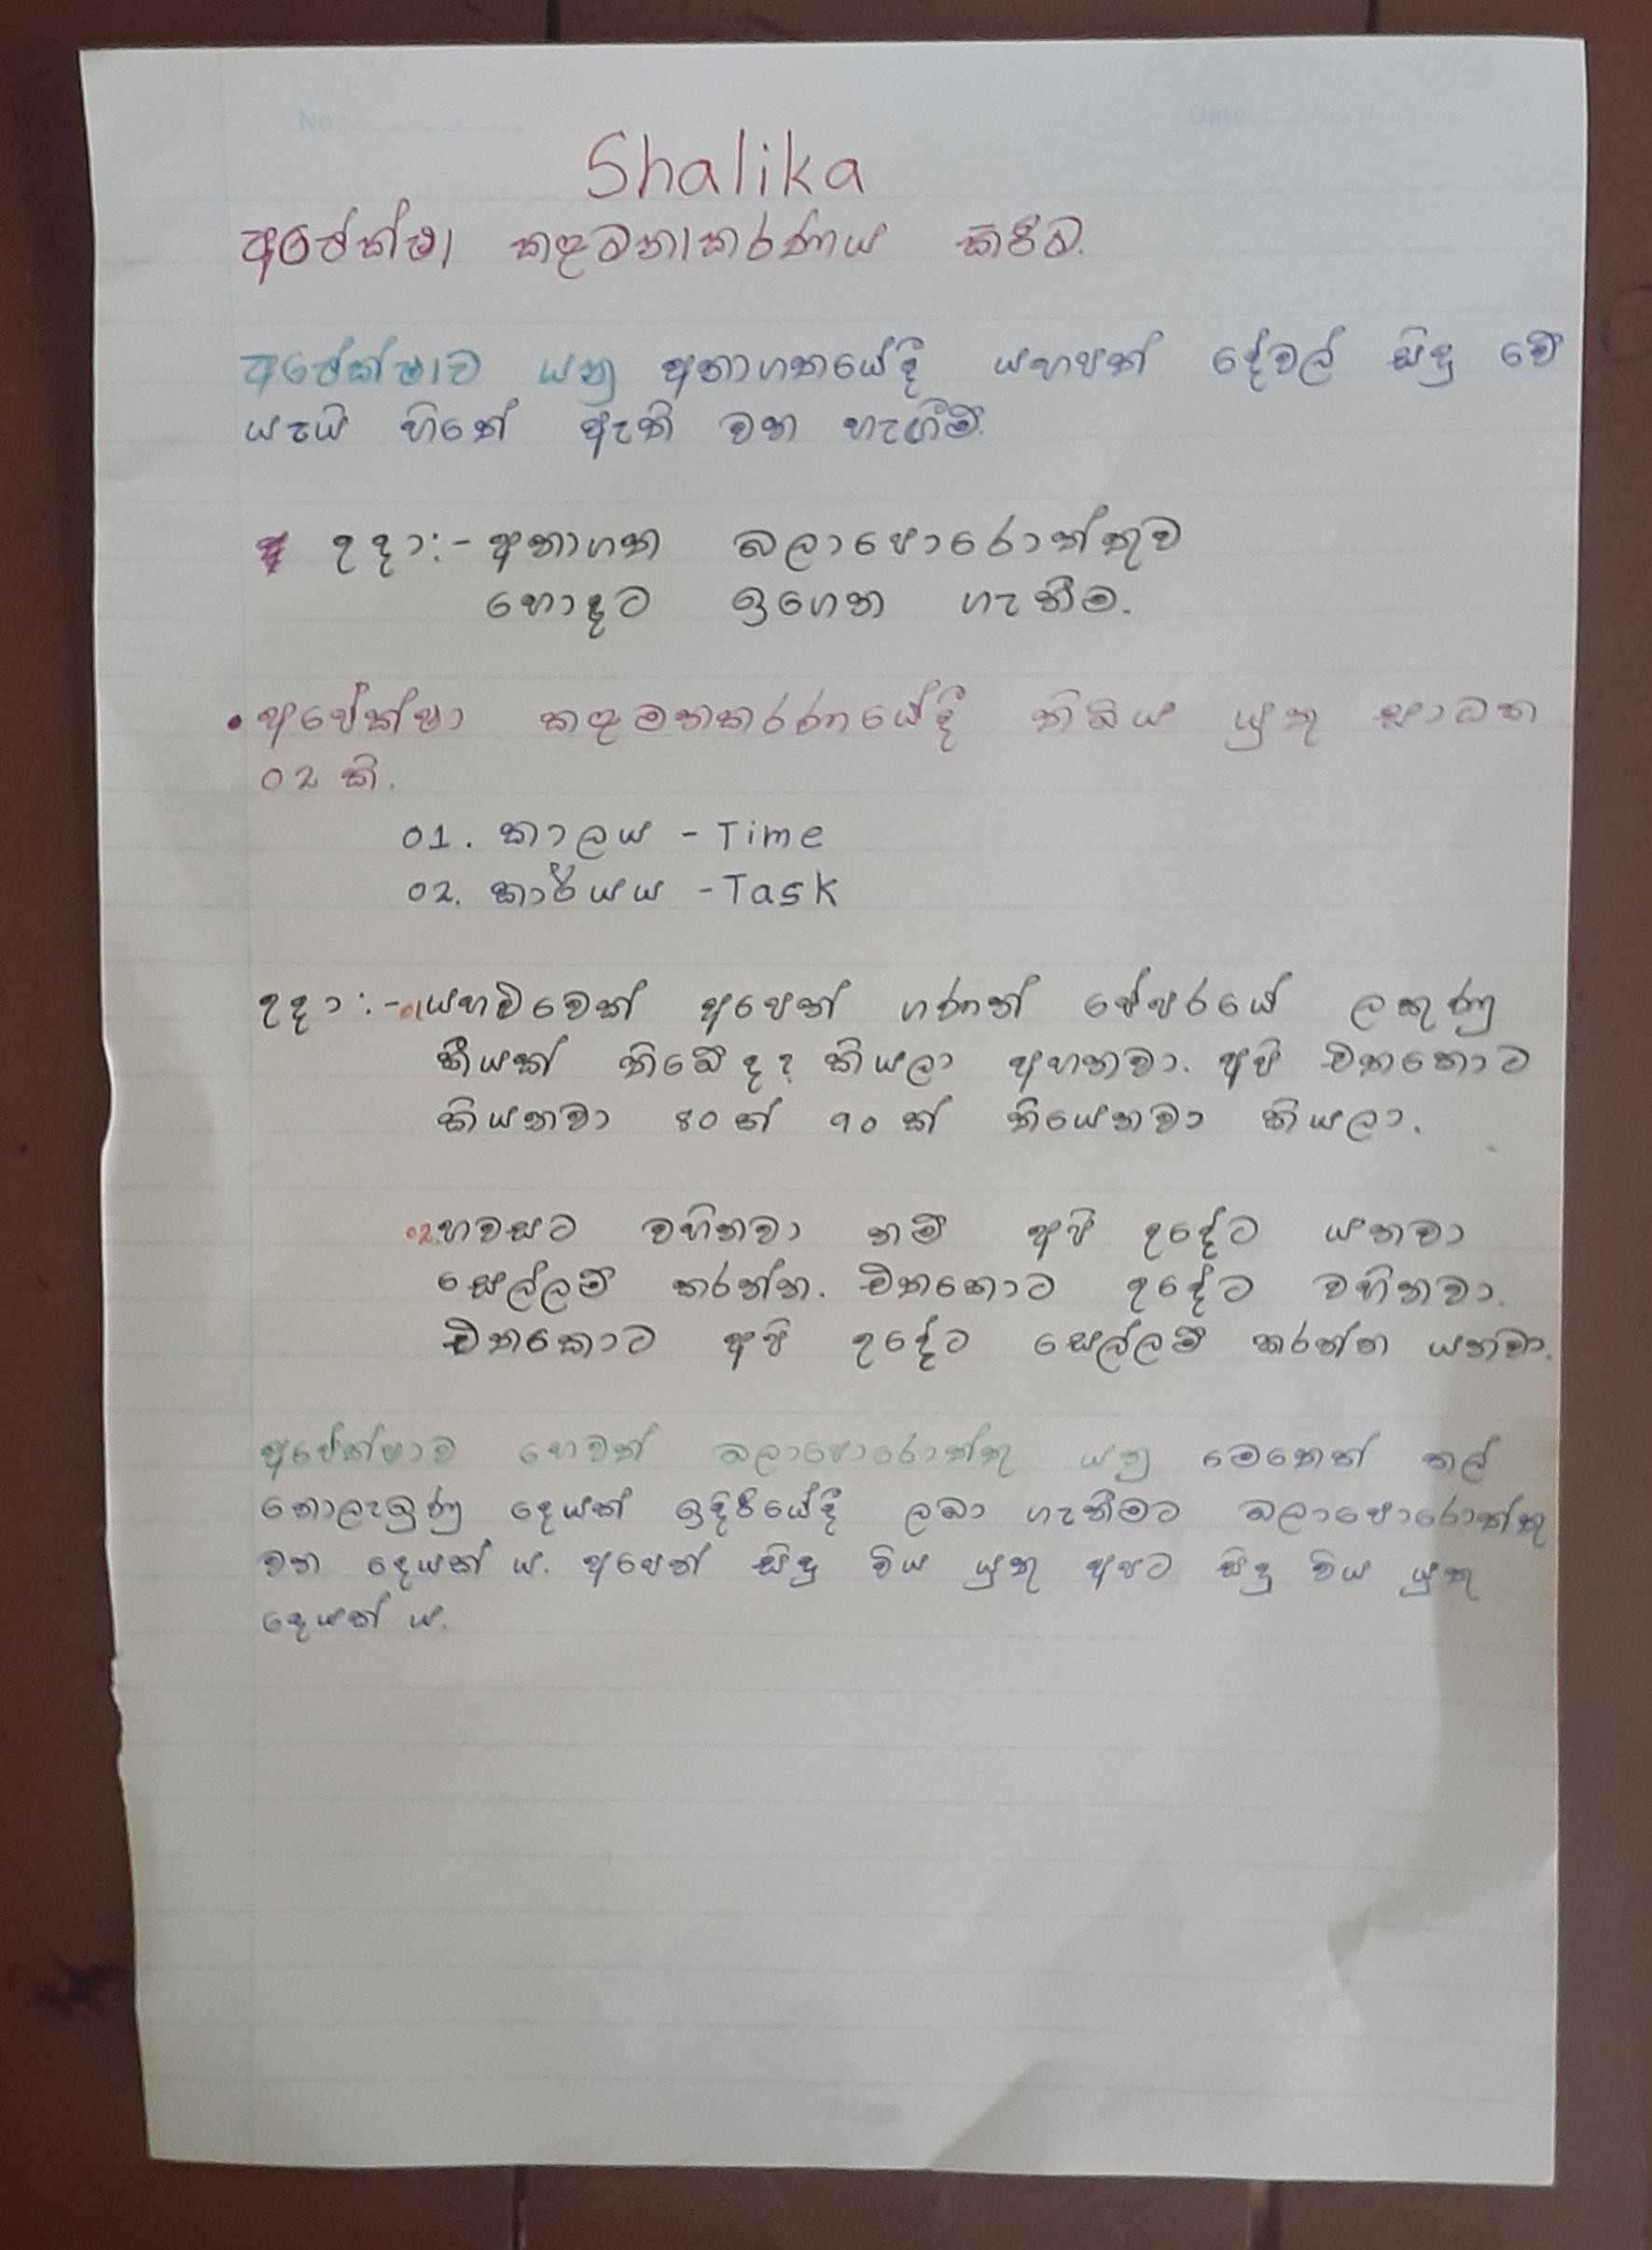 No :
Date:
Shalika
අපේක්ෂා කළමනාකරණය කිරීම.
අපේක්ෂාව යනු අනාගතයේදී යහපත් දේවල් සිදු වේ
යැයි හිතේ ඇති වන හැඟීම්.
* උදා:- අනාගත බලාපොරොත්තුව
හොඳට ඉගෙන ගැනීම.
• අපේක්ෂා කළමනකරණයේදී තිබිය යුතු සාධක
02 කි.
01. කාලය - Time
02. කාර්යය - Task
උදා:- 01 යහළුවෙක් අපෙන් ගණන් පේපරයේ ලකුණු
කීයක් තිබේ ද? කියලා අහනවා. අපි එතකොට
කියනවා 80ක් 90ක් තියෙනවා කියලා.
02. හවසට වහිනවා නම් අපි උදේට යනවා
සෙල්ලම් කරන්න. එතකොට උදේට වහිනවා.
එතකොට අපි උදේට සෙල්ලම් කරන්න යනවා.
අපේක්ෂාව හෙවත් බලාපොරොත්තු යනු මෙතෙක් කල්
නොලැබුණු දෙයක් ඉදිරියේදී ලබා ගැනීමට බලාපොරොත්තු
වන දෙයක් ය. අපෙන් සිදු විය යුතු අපට සිදු විය යුතු
දෙයක් ය.